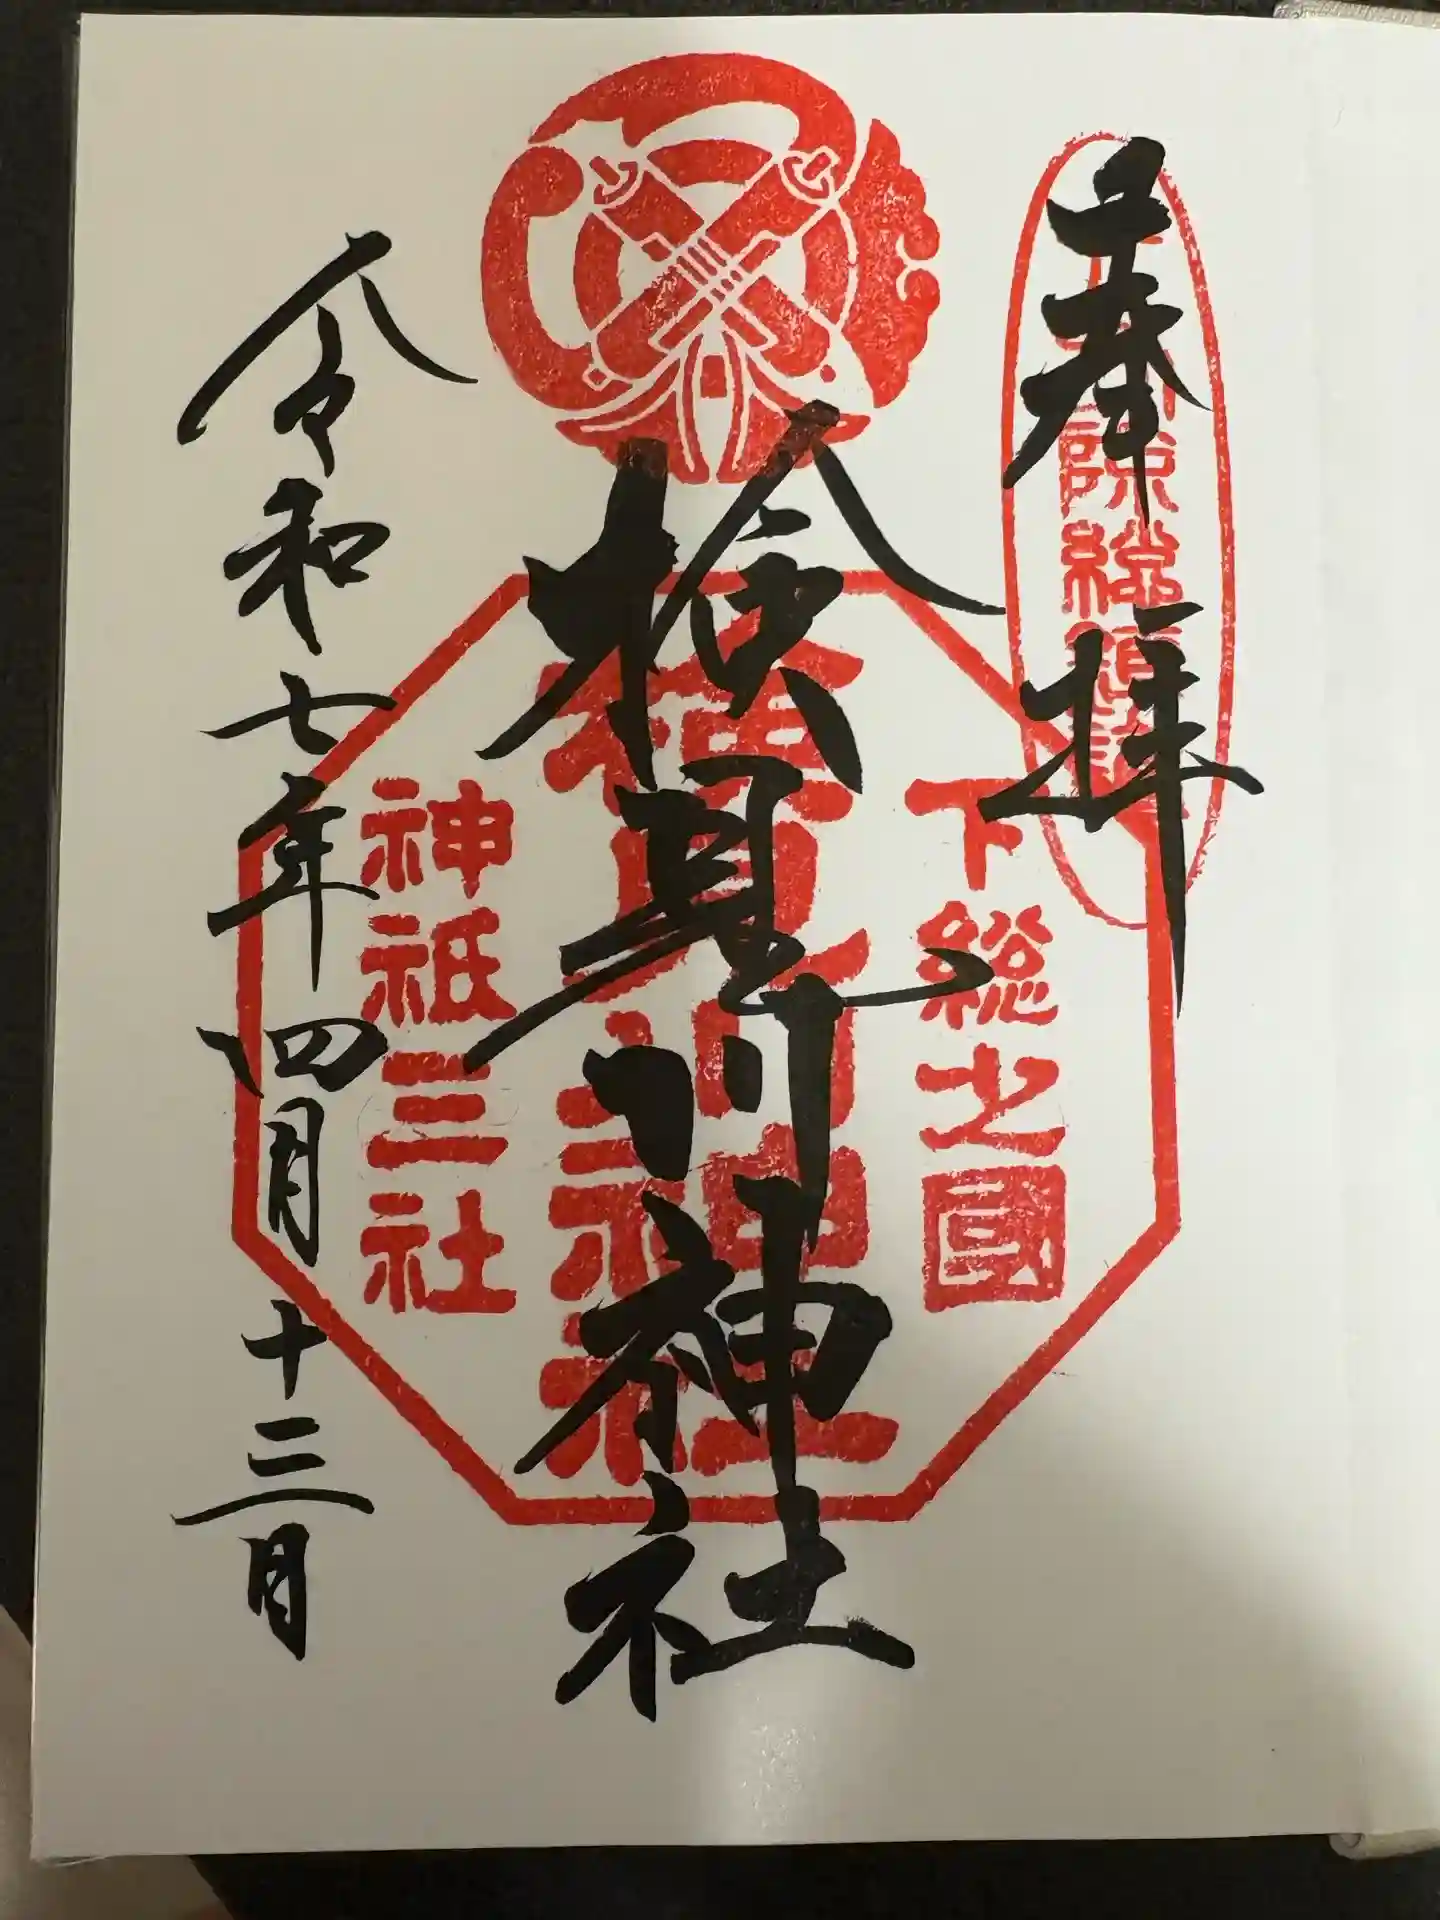 奉拝
下総之國
検見川神社
神祇三社
令和七年四月十三日